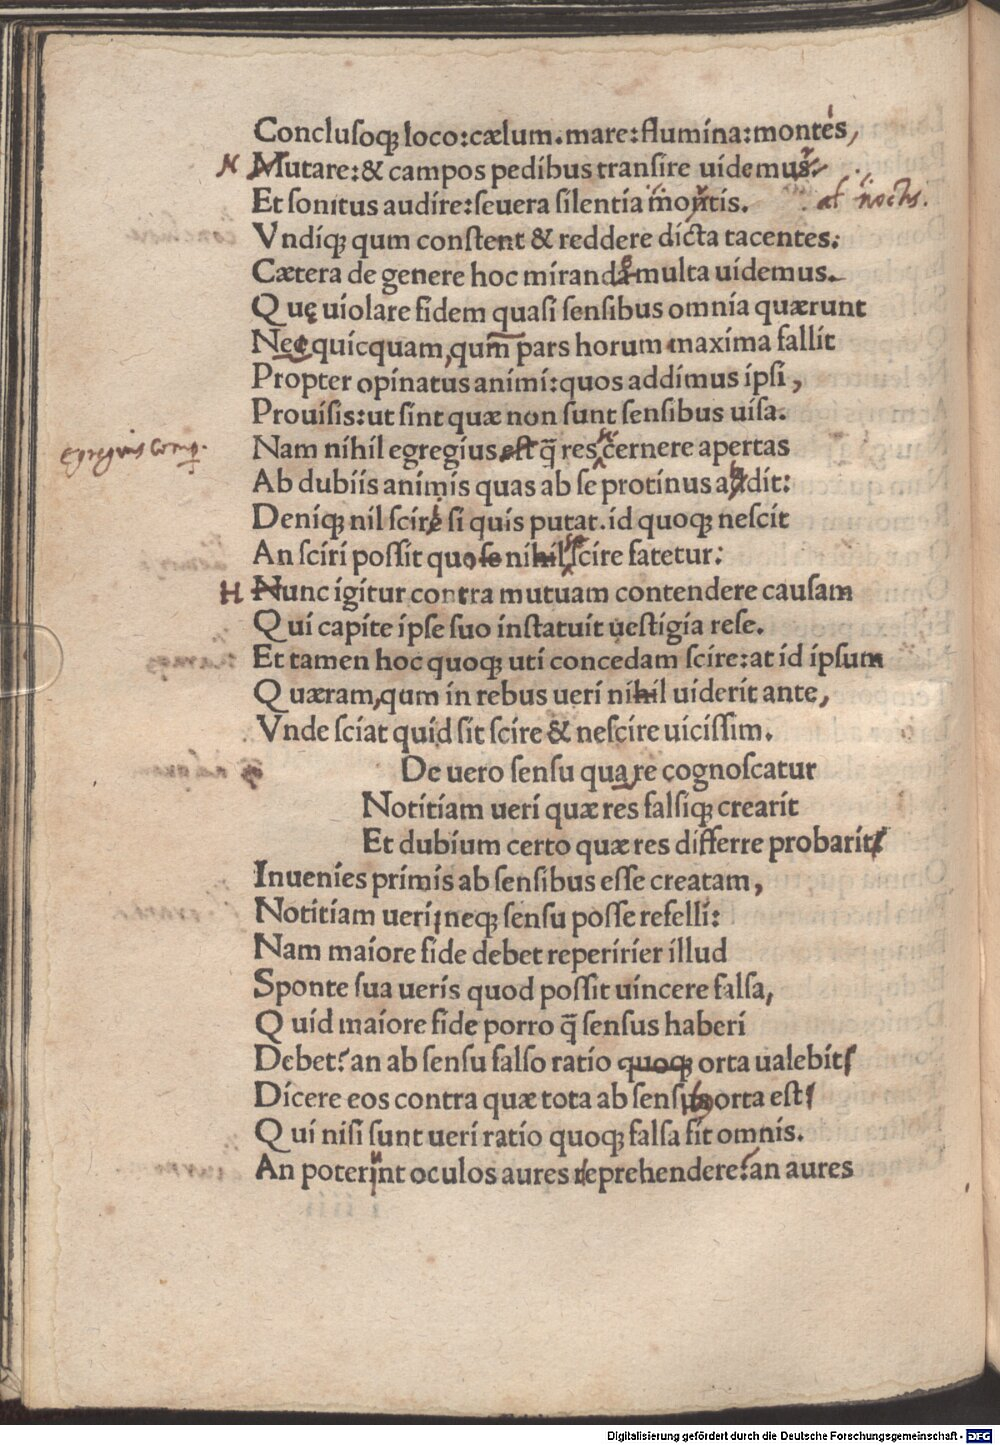 Concluſoq; loco:cælum.mare:flumina:montes,
N Mutare:& campos pedibus tranſire uidemus.
Et ſonitus audire:ſeuera ſilentia montis. al noctis.
Vndiq; qum conſtent & reddere dicta tacentes:
Cætera de genere hoc miranda multa uidemus.
Quę uiolare fidem quaſi ſenſibus omnia quærunt
Nec quicquam,qum pars horum maxima fallit
Propter opinatus animi:quos addimus ipſi,
Prouiſis:ut ſint quæ non ſunt ſenſibus uiſa.
Nam nihil egregius eſt q̄ res cernere apertas
Ab dubiis animis quas ab ſe protinus addit:
Deniq; nil ſcire ſi quis putat.id quoq; neſcit
An ſciri poſſit quo ſe nihil ſcire fatetur:
H Nunc igitur contra mutuam contendere cauſam
Qui capite ipſe ſuo inſtatuit ueſtigia reſe.
Et tamen hoc quoq; uti concedam ſcire:at id ipſum
Quæram,qum in rebus ueri nihil uiderit ante,
Vnde ſciat quid ſit ſcire & neſcire uiciſſim.
De uero ſenſu quare cognoſcatur
Notitiam ueri quæ res falſiq; crearit
Et dubium certo quæ res differre probarit
Inuenies primis ab ſenſibus eſſe creatam,
Notitiam ueri;neq; ſenſu poſſe refelli:
Nam maiore fide debet reperirier illud
Sponte ſua ueris quod poſſit uincere falſa,
Quid maiore fide porro q̄ ſenſus haberi
Debet? an ab ſenſu falſo ratio quoq; orta ualebit
Dicere eos contra quæ tota ab ſenſu orta eſt
Qui niſi ſunt ueri ratio quoq; falſa fit omnis.
An poterint oculos aures reprehendere?an aures
Digitalisierung gefördert durch die Deutsche Forschungsgemeinschaft - DFG